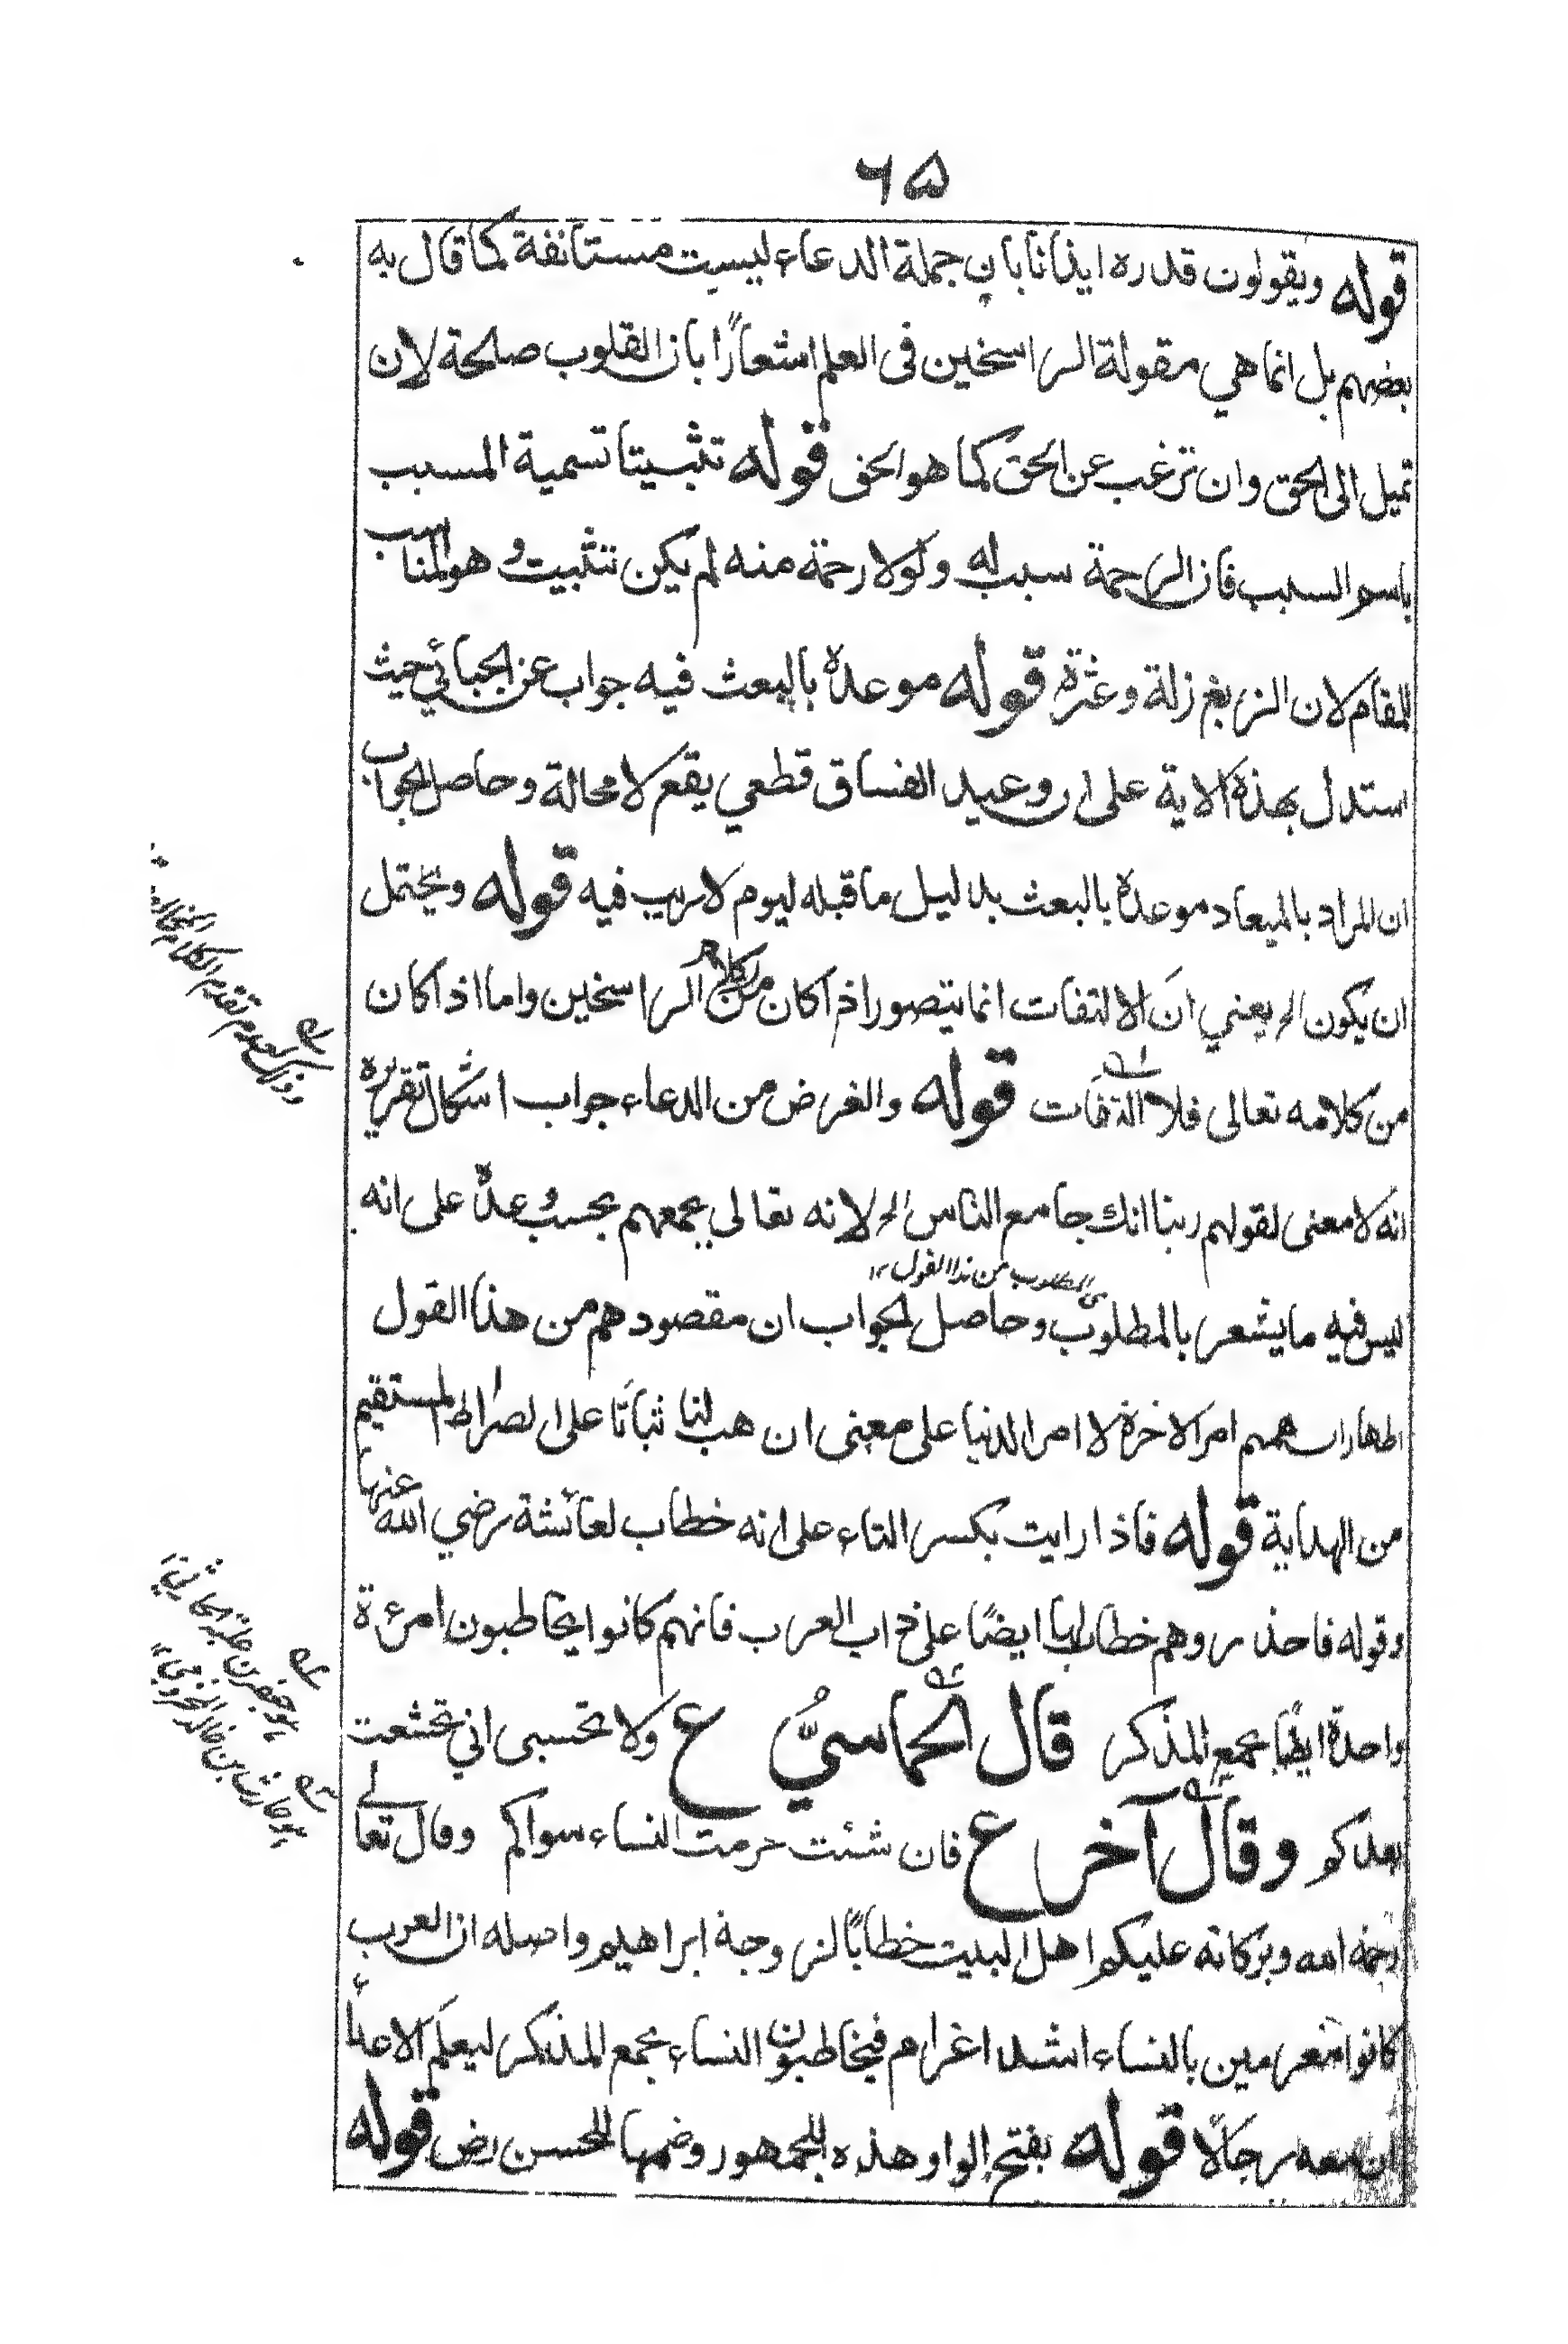 ۶۵
قوله ويقولون قدره ايذانا بان جملة الدعاء ليست مستانفة كما قال به
بعضهم بل انما هي مقولة الراسخين في العلم اشعارًا بان القلوب صلحة لان
تميل الى الحق وان ترغب عن الحق كما هو الحق قوله تثبيتا تسمية المسبب
باسم السبب فان الرحمة سبب له ولولا رحمة منه لم يكن تثبيت وهو المناسب
للمقام لان الزيغ زلة وعثرة قوله موعدة بالبعث فيه جواب عن الجبائي حيث
استدل بهذه الاية على ان وعيد الفساق قطعي يقع لا محالة وحاصل الجواب
ان المراد بالميعاد موعدة بالبعث بدليل ما قبله ليوم لا ريب فيه قوله ويحتمل
ان يكون الخ يعني ان الالتفات انما يتصور اذا كان من كلام الراسخين واما اذا كان
من كلامه تعالى فلا التفات قوله والغرض من الدعاء جواب اشكال تقريره
انه لا معنى لقولهم ربنا انك جامع الناس الخ لانه تعالى يجمعهم بحسب وعده على انه
المطلوب من هذا القول ١٢
ليس فيه ما يشعر بالمطلوب وحاصل الجواب ان مقصودهم من هذا القول
اظهار ان همهم امر الاخرة لا امر الدنيا على معنى ان هب لنا ثباتا على الصراط المستقيم
من الهداية قوله فاذا رايت بكسر التاء على انه خطاب لعائشة رضي الله عنها
وقوله فاحذروهم خطاب لها ايضًا على داب العرب فانهم كانوا يخاطبون امرءة
واحدة ايضا بجمع المذكر قال الحماسيُّ ع ولا تحسبي اني تخشعت
بعدكم وقال آخر ع فان شئت حرمت النساء سواكم وقال تعالى
رحمة الله وبركاته عليكم اهل البيت خطابًا لزوجة ابراهيم واصله ان العرب
كانوا مغرمين بالنساء اشد اغرام فيخاطبون النساء بجمع المذكر ليعلم الاعداء
ان معه رجالا قوله بفتح الواو هذه للجمهور وضمها للحسن رض قوله
وذلك لعدم تقدم الكلام
جعفر بن علبة الحارثي
حارث بن خالد المخزومي